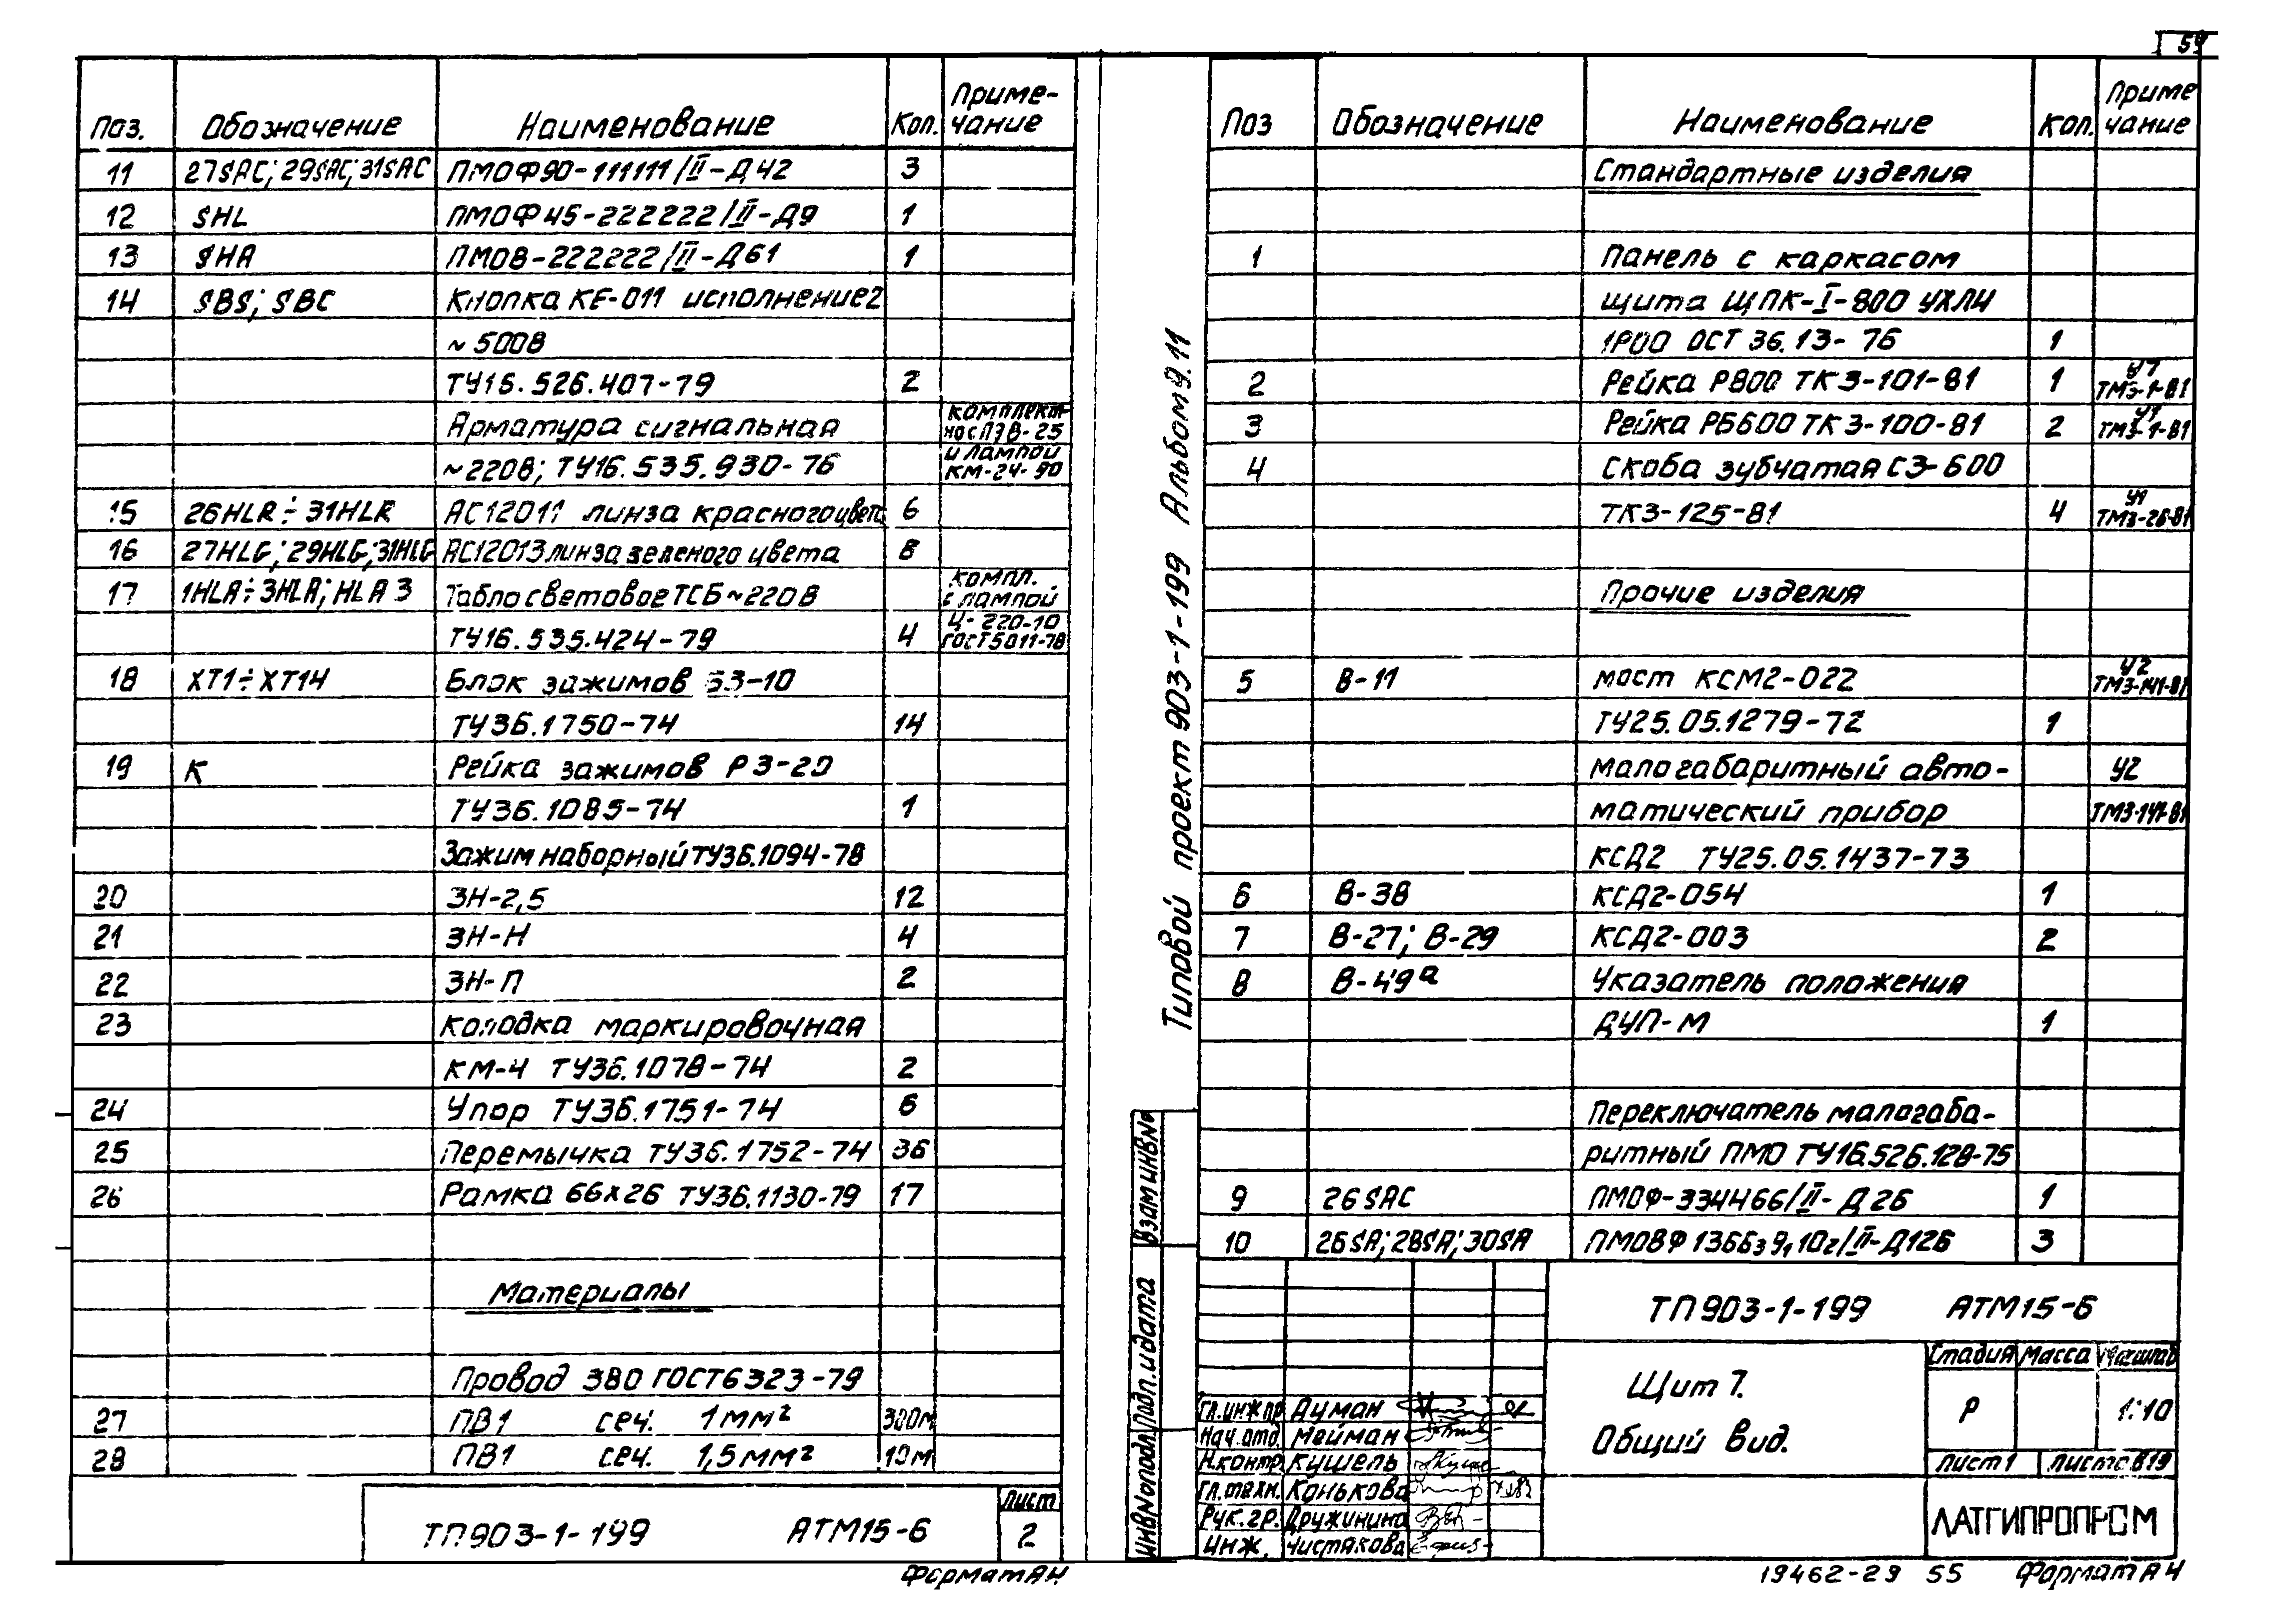 Поз. Обозначение Наименование Кол. Приме-
чание
11 27SAC; 29SAC; 31SAC ПМОФ90-111111/II-Д42 3
12 SHL ПМОФ45-222222/II-Д9 1
13 SHA ПМОВ-222222/II-Д61 1
14 SBS; SBC Кнопка КЕ-011 исполнение2
~ 500В
ТУ16.526.407-79 2
Арматура сигнальная комплект-
но с ПЭВ-25
~220В; ТУ16.535.930-76 и лампой
КМ-24-90
15 26HLR ÷ 31HLR АС12011 линза красного цвета 6
16 27HLG; 29HLG; 31HLG АС12013 линза зеленого цвета 8
17 1HLA÷3HLA; HLA3 Табло световое ТСБ ~220В компл.
с лампой
ТУ16.535.424-79 4 Ц-220-10
ГОСТ5011-78
18 XT1÷XT14 Блок зажимов БЗ-10
ТУ36.1750-74 14
19 К Рейка зажимов РЗ-20
ТУ36.1085-74 1
Зажим наборный ТУ36.1094-78
20 ЗН-2,5 12
21 ЗН-Н 4
22 ЗН-П 2
23 Колодка маркировочная
КМ-4 ТУ36.1078-74 2
24 Упор ТУ36.1751-74 6
25 Перемычка ТУ36.1752-74 36
26 Рамка 66х26 ТУ36.1130-79 17
Материалы
Провод 380 ГОСТ6323-79
27 ПВ1 сеч. 1мм² 300м
28 ПВ1 сеч. 1,5мм² 10м
ТП903-1-199 АТМ15-6
Лист
2
Формат А4
Типовой проект 903-1-199 Альбом 9.11
59
Поз Обозначение Наименование Кол. Приме
чание
Стандартные изделия
1 Панель с каркасом
щита ЩПК-I-800 УХЛ4
1Р00 ОСТ 36.13-76 1
2 Рейка Р800 ТК3-101-81 1 У7
ТМ3-1-81
3 Рейка РБ600 ТК3-100-81 2 У1
ТМ3-1-81
4 Скоба зубчатая СЗ-600
ТК3-125-81 4 У1
ТМ3-26-81
Прочие изделия
5 В-11 мост КСМ2-022 У2
ТМ3-141-81
ТУ25.05.1279-72 1
малогабаритный авто- У2
матический прибор ТМ3-141-81
КСД2 ТУ25.05.1437-73
6 В-38 КСД2-054 1
7 В-27; В-29 КСД2-003 2
8 В-49а Указатель положения
ДУП-М 1
Переключатель малогаба-
ритный ПМО ТУ16.526.128-75
9 26SAC ПМОФ-334466/II-Д26 1
10 26SA; 28SA; 30SA ПМОВФ 1366з9,10г/II-Д126 3
Взам инв№
Подп. и дата
Инв№подл.
ТП903-1-199 АТМ15-6
Щит 7.
Общий вид.
Стадия Масса Масштаб
Р 1:10
Лист 1 Листов 19
ЛАТГИПРОПРОМ
Гл.инж.пр Думан
Нач.отд. Мейман
Н.контр. Кушель
Гл.техн. Конькова
Рук.гр. Дружинина
Инж. Чистякова
19462-29 55 Формат А4